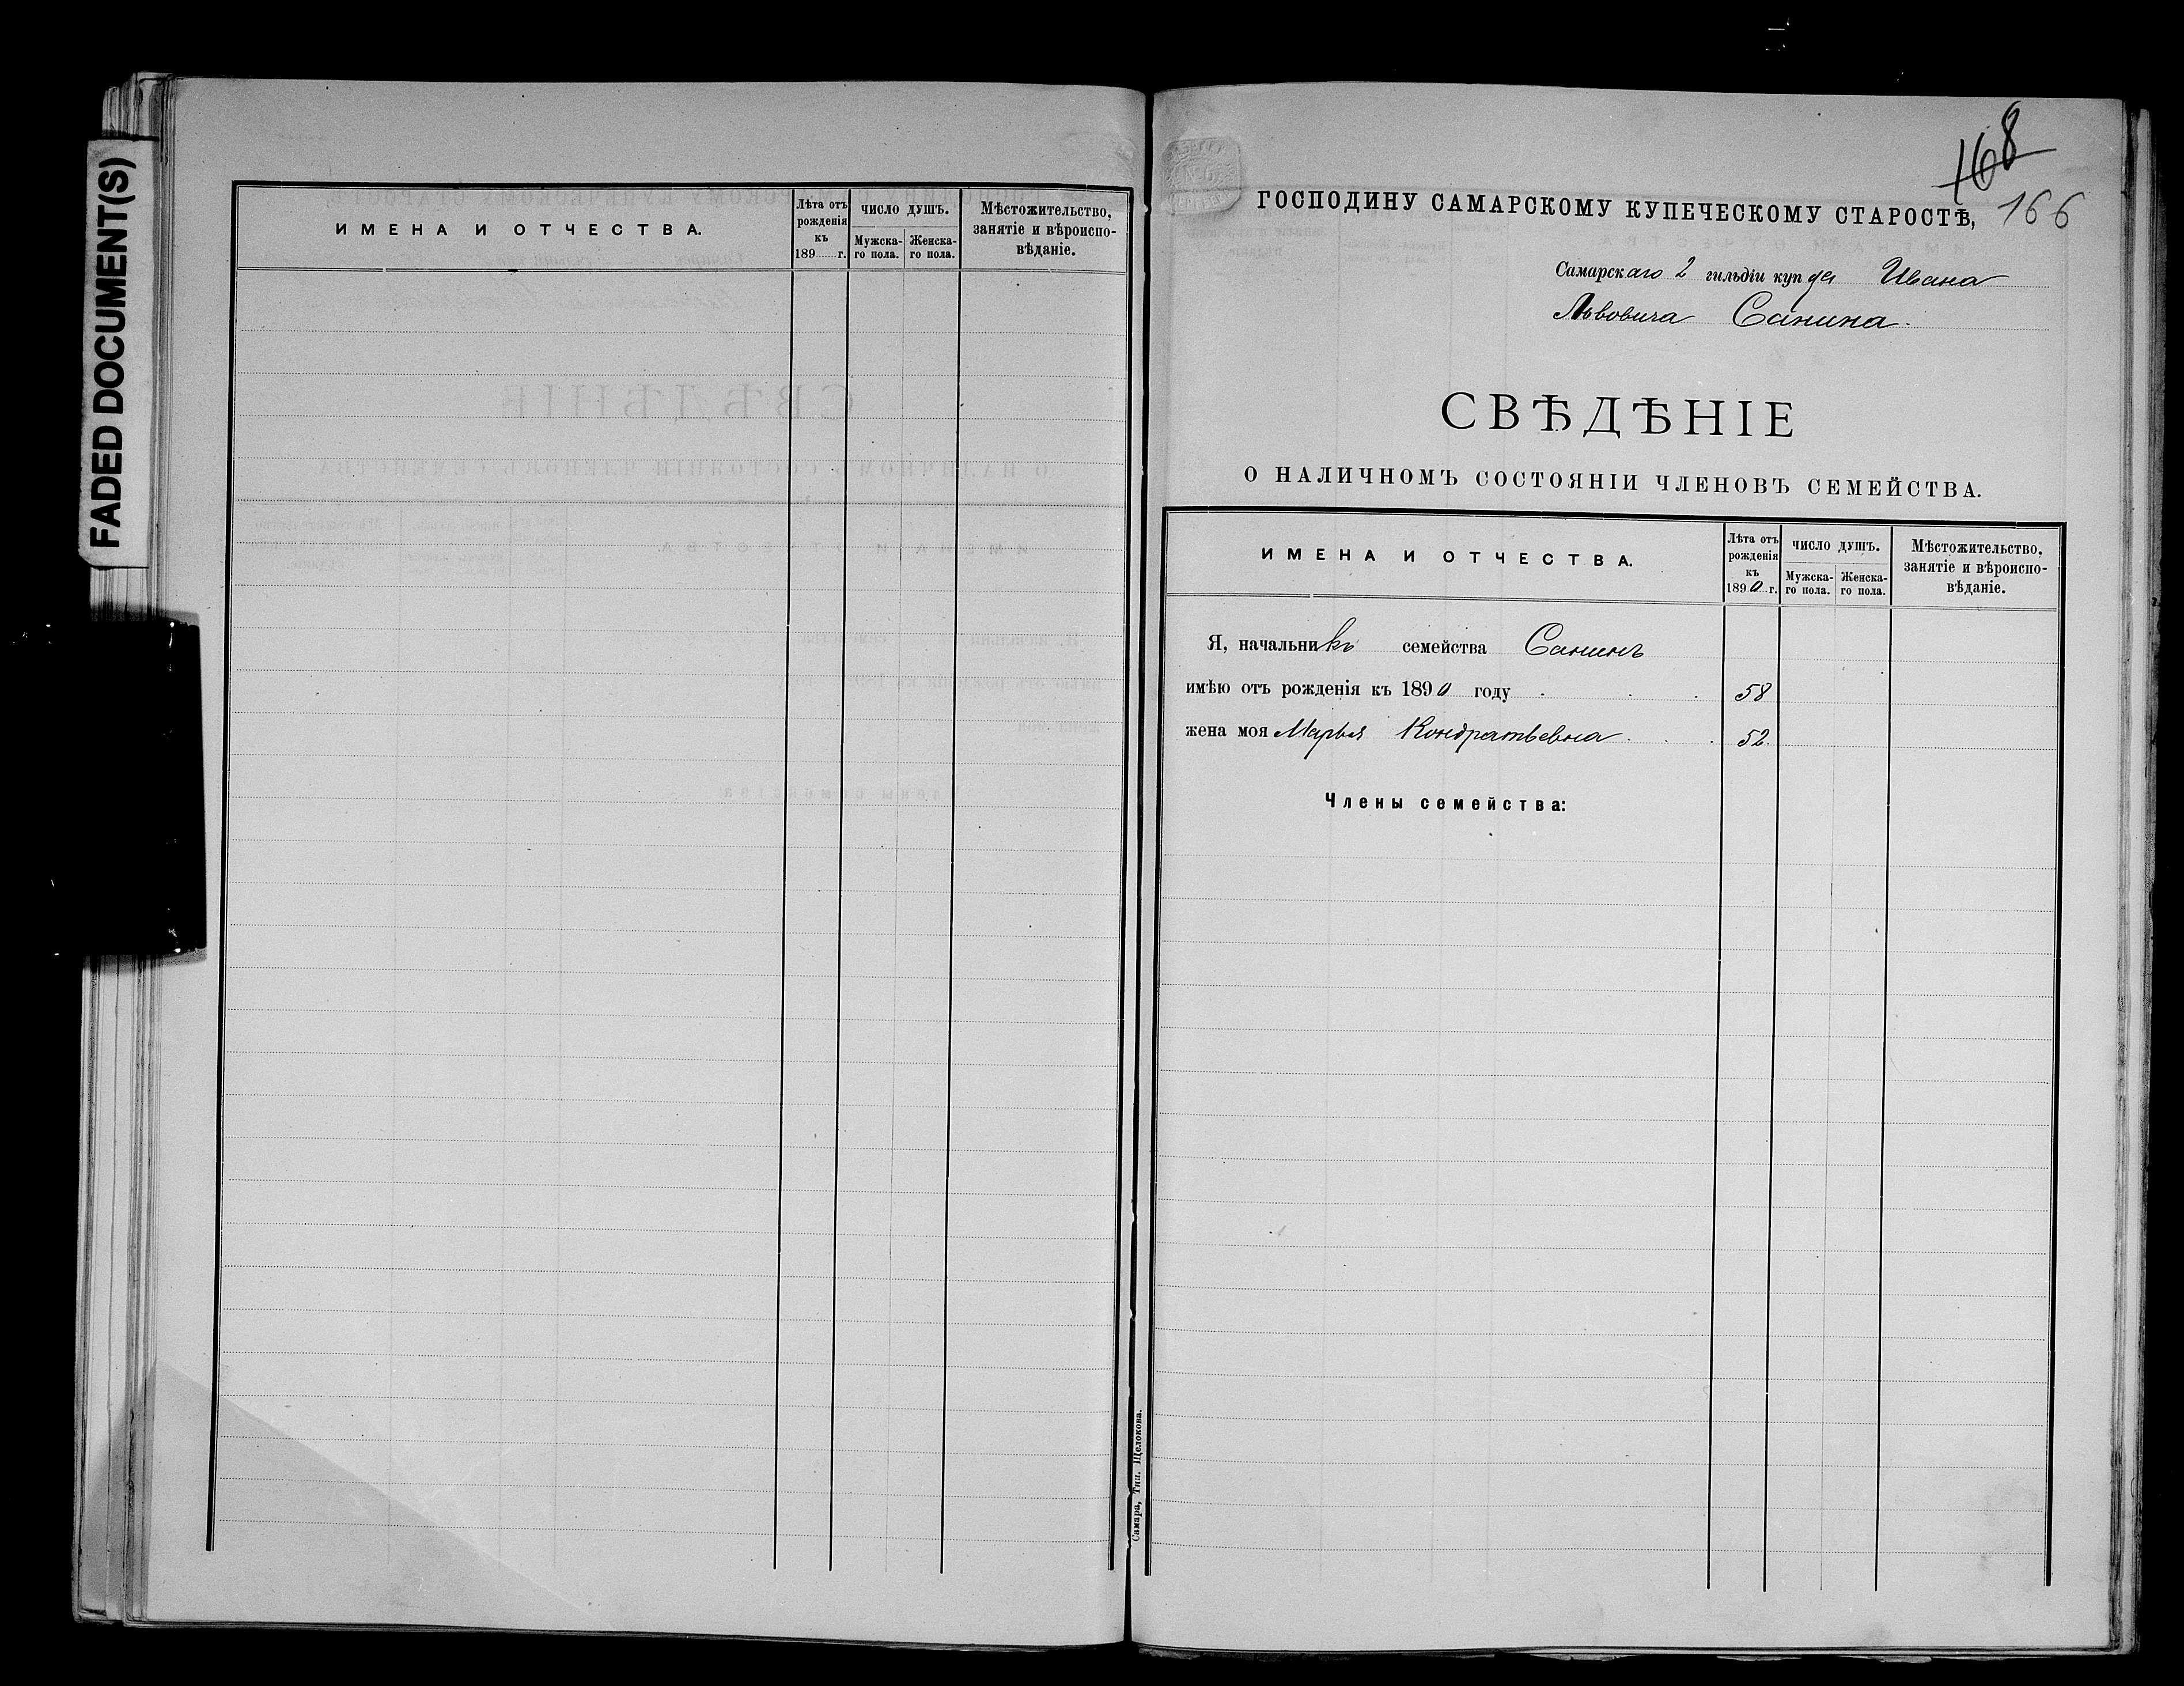 FADED DOCUMENT(S)
ИМЕНА И ОТЧЕСТВА.
Лѣта отъ рожденія къ 189 г.
ЧИСЛО ДУШЪ.
Мужска-го пола.
Женска-го пола.
Мѣстожительство, занятіе и вѣроиспо-вѣданіе.
168
166
ГОСПОДИНУ САМАРСКОМУ КУПЕЧЕСКОМУ СТАРОСТѢ,
Самарскаго 2 гильдіи купца Ивана
Львовича Санина.
СВѢДѢНІЕ
О НАЛИЧНОМЪ СОСТОЯНІИ ЧЛЕНОВЪ СЕМЕЙСТВА.
ИМЕНА И ОТЧЕСТВА.
Лѣта отъ рожденія къ 1890 г.
ЧИСЛО ДУШЪ.
Мужска-го пола.
Женска-го пола.
Мѣстожительство, занятіе и вѣроиспо-вѣданіе.
Я, начальникъ семейства Санинъ
имѣю отъ рожденія къ 1890 году . . . 58
жена моя Марья Кондратьевна . . . 52.
Члены семейства:
Самара, Тип. Щелокова.